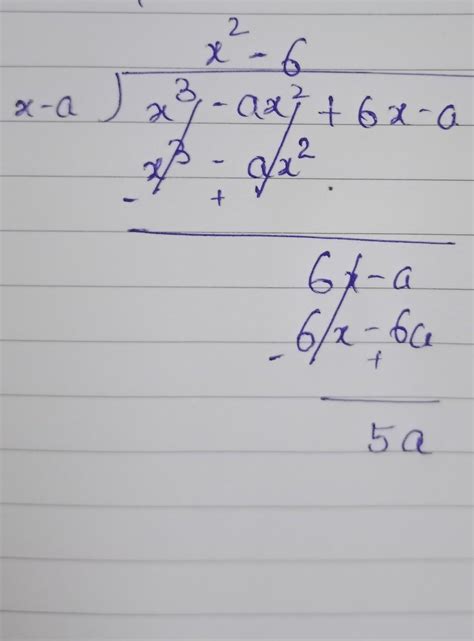 x² - 6
x-a ) x³ - ax² + 6x - a
x³ - ax²
- +
6x - a
6x - 6a
- +
5a